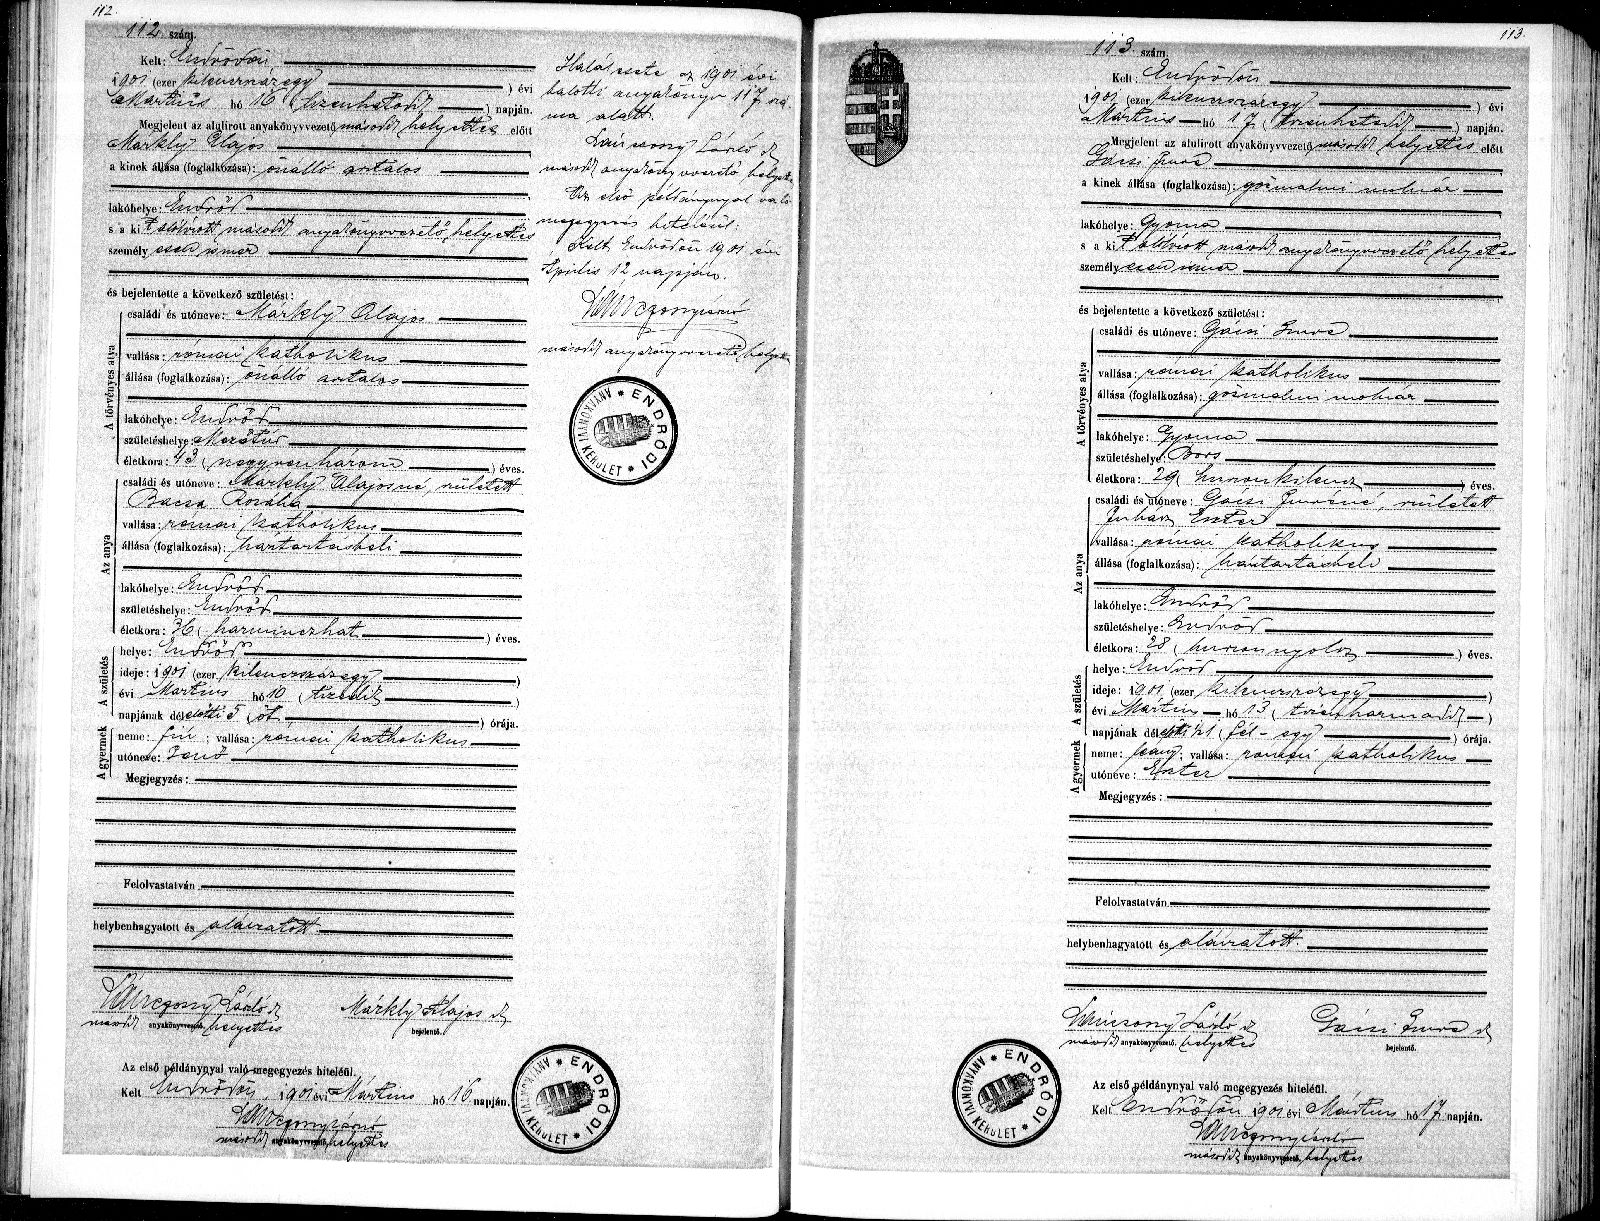 112.
112. szám.
Kelt: Endrődön
1901 (ezer kilenczszázegy) évi
Mártius hó 16 (tizenhatodik) napján.
Megjelent az alulirott anyakönyvvezető másodk helyettes előtt
Márkly Alajos
a kinek állása (foglalkozása): önálló asztalos
lakóhelye: Endrőd
s a kit alólirott másodk anyakönyvvezető helyettes
személyesen ismer
és bejelentette a következő születést:
A törvényes atya
családi és utóneve: Márkly Alajos
vallása: római katholikus
állása (foglalkozása): önálló asztalos
lakóhelye: Endrőd
születéshelye: Mezőtúr
életkora: 43 (negyvenhárom) éves.
Az anya
családi és utóneve: Márkly Alajosné, született
Bacsa Rozália
vallása: római katholikus
állása (foglalkozása): háztartásbeli
lakóhelye: Endrőd
születéshelye: Endrőd
életkora: 36 (harminczhat) éves.
A születés
helye: Endrőd
ideje: 1901 (ezer kilenczszázegy)
évi Mártius hó 10 (tizedik)
napjának délelőtti 5 (öt) órája.
A gyermek
neme: fiú; vallása: római katholikus
utóneve: Jenő
Megjegyzés:
Felolvastatván
helybenhagyatott és aláiratott
Lánczony László k
másodk anyakönyvvezető helyettes
Márkly Alajos k
bejelentő.
Az első példánynyal való megegyezés hiteléül.
Kelt Endrődön, 1901 évi Mártius hó 16 napján.
másodk anyakönyvvezető helyettes
ENDRŐDI ANYAKÖNYVI KERÜLET
Halálesete az 1901 évi
halotti anyakönyv 117 szá
ma alatt.
László k
másodk anyakönyvvezető helyettes
Az első példánynyal való
megegyezés hiteléül.
Kelt Endrődön 1901 évi
Április 12 napján.
másodk anyakönyvvezető helyettes
ENDRŐDI ANYAKÖNYVI KERÜLET
113.
113 szám.
Kelt: Endrődön
1901 (ezer kilenczszázegy) évi
Mártius hó 17 (tizenhetedik) napján.
Megjelent az alulirott anyakönyvvezető másodk helyettes előtt
Gácsi Imre
a kinek állása (foglalkozása): gőzmalmi molnár
lakóhelye: Gyoma
s a kit alólirott másodk anyakönyvvezető helyettes
személyesen ismer
és bejelentette a következő születést:
A törvényes atya
családi és utóneve: Gácsi Imre
vallása: római katholikus
állása (foglalkozása): gőzmalmi molnár
lakóhelye: Gyoma
születéshelye: Bors
életkora: 29 (huszonkilencz) éves.
Az anya
családi és utóneve: Gácsi Imréné, született
Juhász Eszter
vallása: római katholikus
állása (foglalkozása): háztartásbeli
lakóhelye: Endrőd
születéshelye: Endrőd
életkora: 28 (huszonnyolcz) éves.
A születés
helye: Endrőd
ideje: 1901 (ezer kilenczszázegy)
évi Mártius hó 13 (tizenharmadik)
napjának délelőtti ½1 (fél-egy) órája.
A gyermek
neme: leány; vallása: római katholikus
utóneve: Eszter
Megjegyzés:
Felolvastatván
helybenhagyatott és aláiratott.
Lánczony László k
másodk anyakönyvvezető. helyettes
Gácsi Imre k
bejelentő.
Az első példánynyal való megegyezés hiteléül.
Kelt Endrődön 1901 évi Mártius hó 17 napján.
másodk anyakönyvvezető, helyettes
ENDRŐDI ANYAKÖNYVI KERÜLET